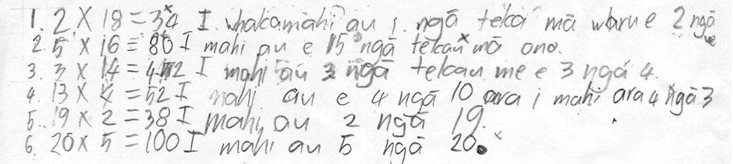 1. 2 × 18 = 34 I whakamahi au i ngā tekau mā waru e 2 ngā
2. 5 × 16 = 80 I mahi au e 5 ngā tekau mā ono.
3. 3 × 14 = 42 I mahi au 3 ngā tekau me e 3 ngā 4.
4. 13 × 4 = 52 I mahi au e 4 ngā 10 ara i mahi ara 4 ngā 3
5. 19 × 2 = 38 I mahi au 2 ngā 19.
6. 20 × 5 = 100 I mahi au 5 ngā 20.